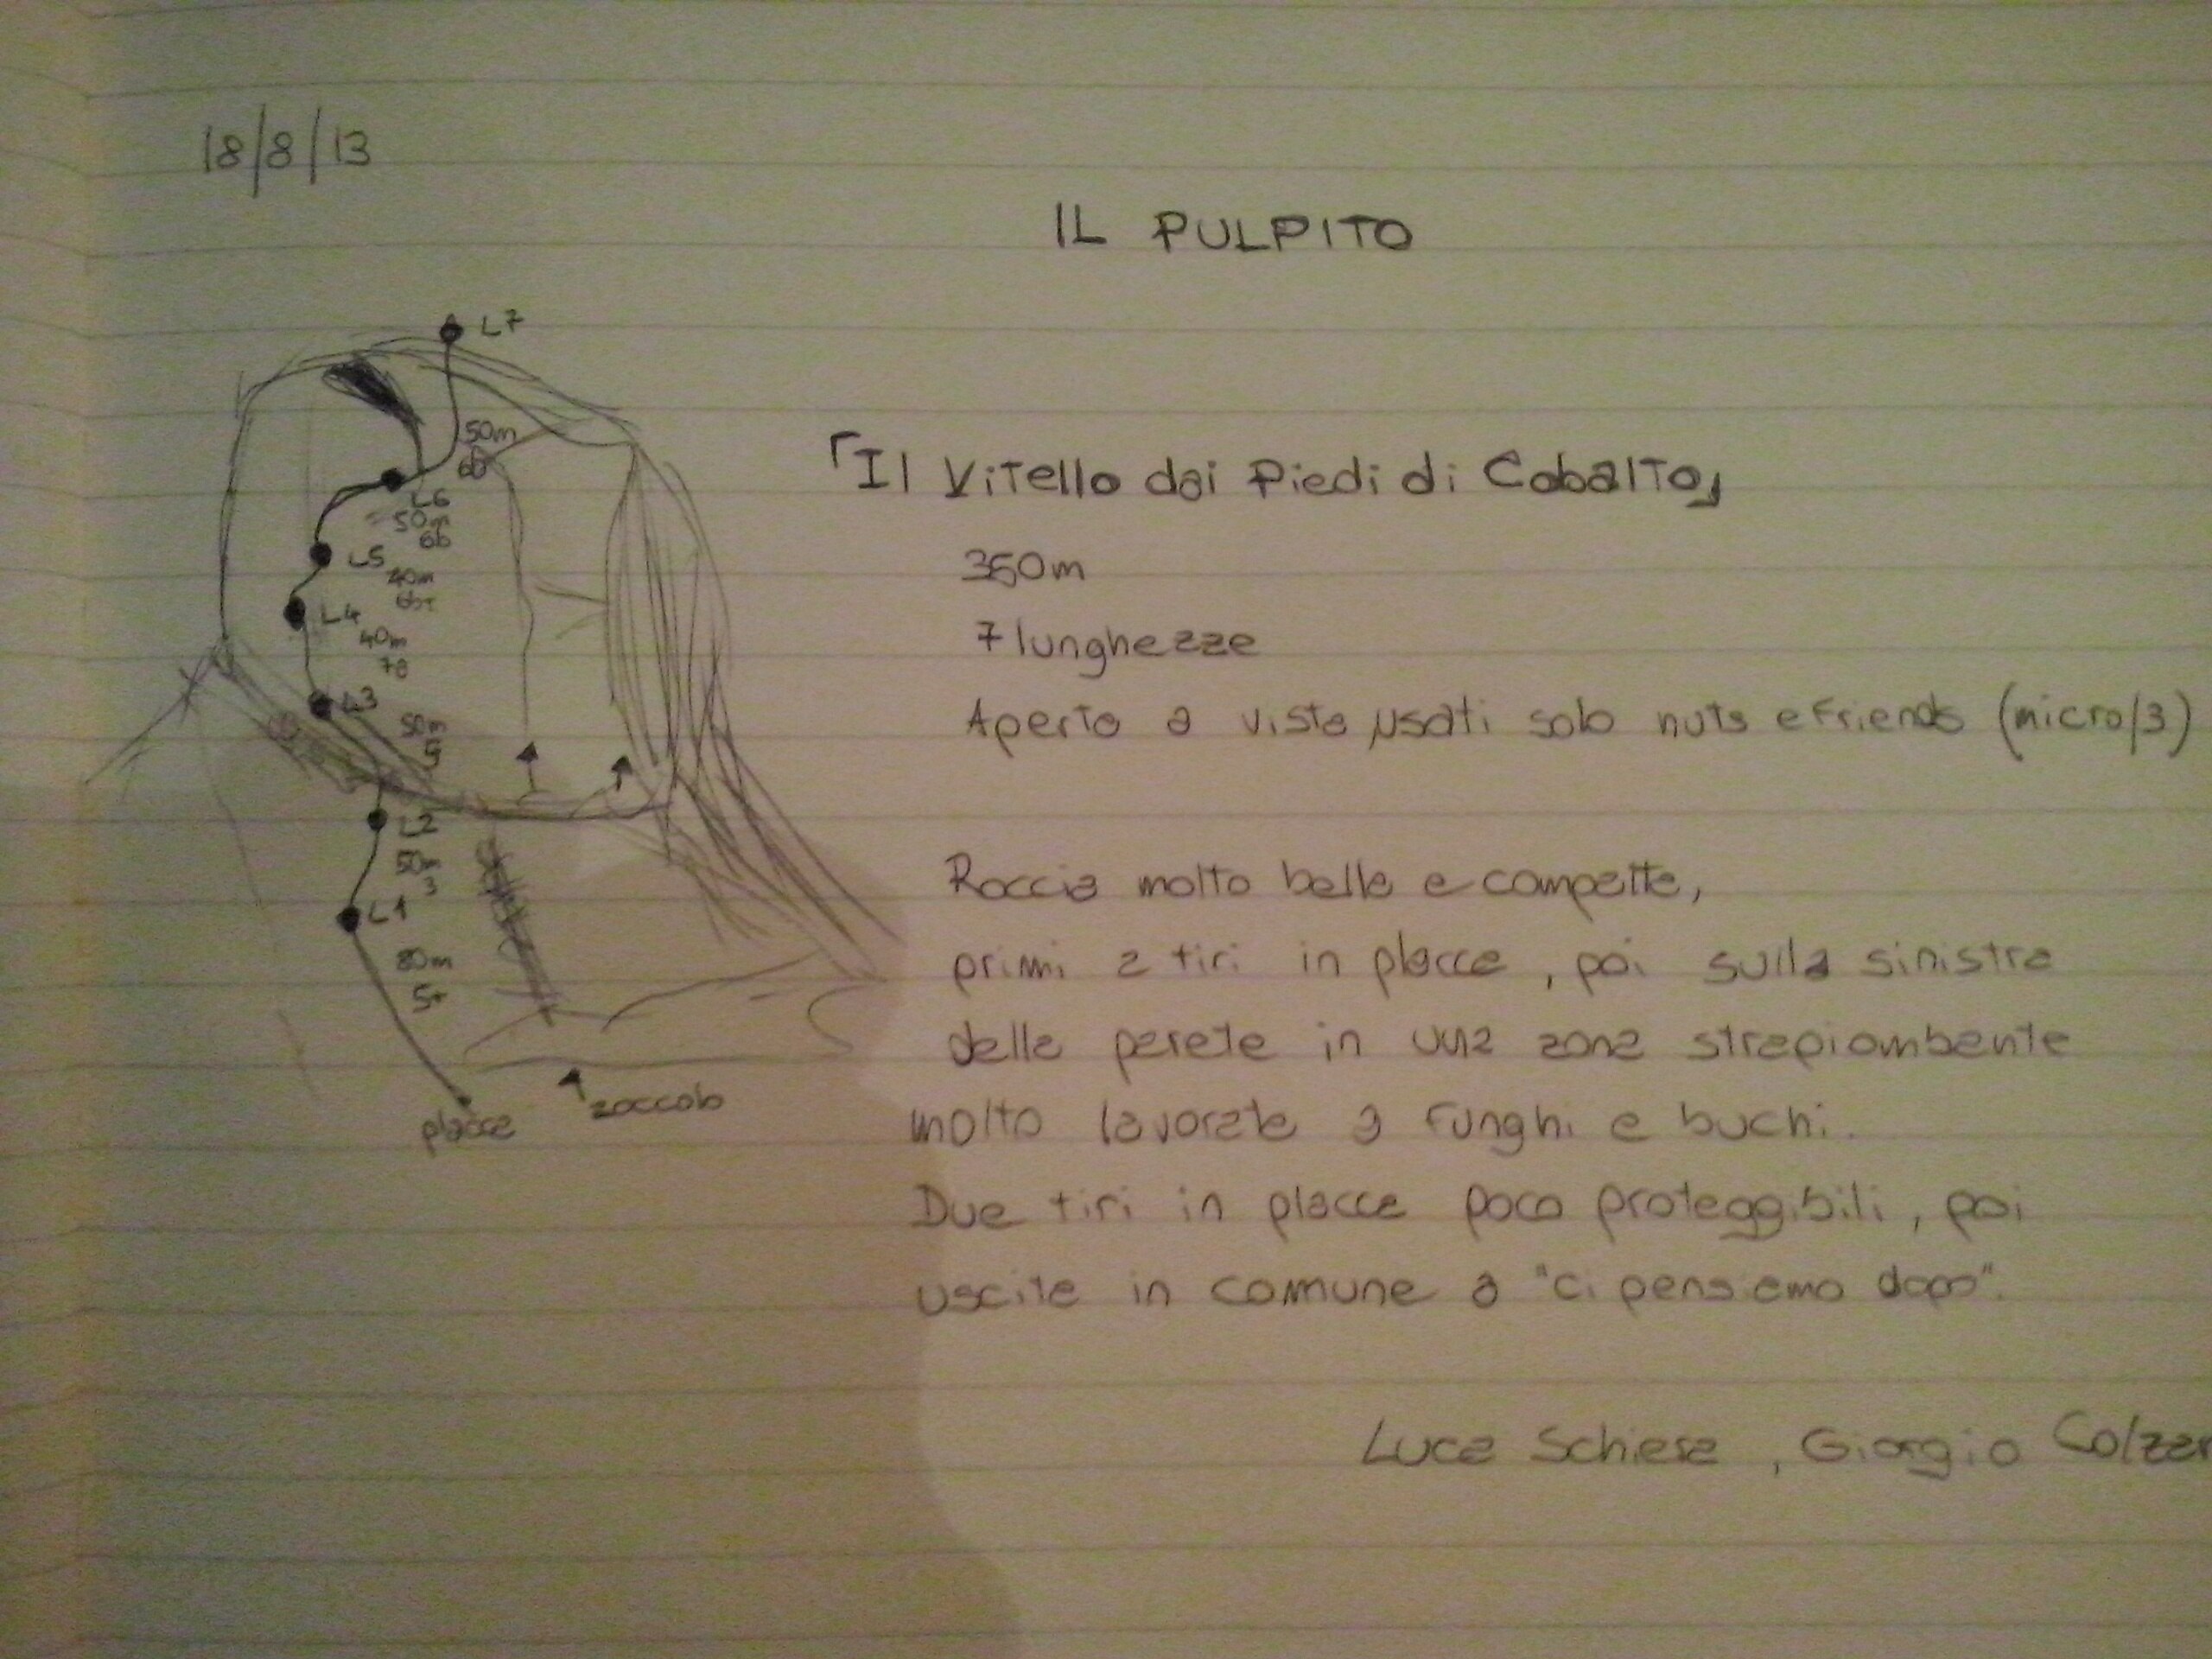 18/8/13
IL PULPITO
L7
50m
6b
L6
50m
6b
L5
40m
6b+
L4
40m
7a
L3
50m
5
L2
50m
3
L1
80m
5+
placca
zoccolo
「Il Vitello dai Piedi di Cobalto」
360m
7 lunghezze
Aperto a vista usati solo nuts e friends (micro/3)
Roccia molto bella e compatta,
primi 2 tiri in placca, poi sulla sinistra
della parete in una zona strapiombante
molto lavorata a funghi e buchi.
Due tiri in placca poco proteggibili, poi
uscita in comune a "ci pensiamo dopo".
Luca Schiera, Giorgio Colzan